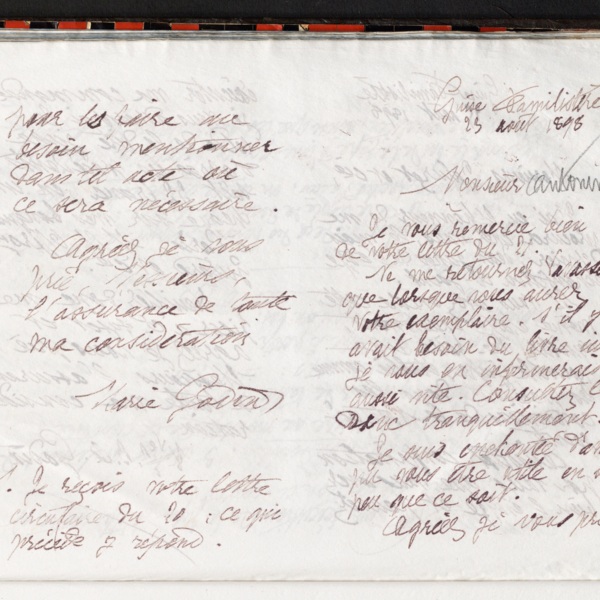 pour les faire au
besoin mentionner
dans tel acte où
ce sera nécessaire.
Agréez je vous
prie, Messieurs,
l'assurance de toute
ma considération
Marie Godin
. Je reçois votre lettre
circulaire du 20 : ce qui
précède y répond.
Guise Familistère
23 août 1898
Monsieur Antonin
Je vous remercie bien
de votre lettre du 21.
Ne me retournez
que lorsque vous aurez
votre exemplaire. S'il y
avait besoin du livre
je vous en informerais
aussi vite. Consultez
donc tranquillement.
Je suis enchantée d'a
pu vous être utile en
peu que ce soit.
Agréez je vous pr